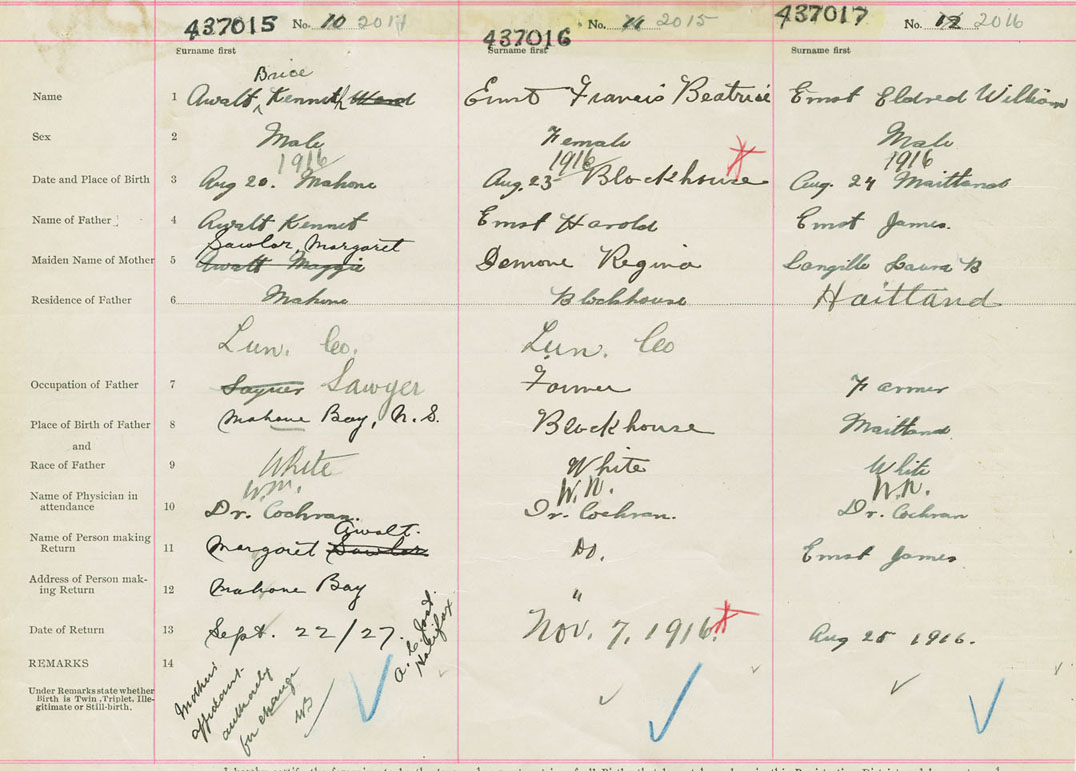 437015 No. 10 2014
437016 No. 11 2015
437017 No. 12 2016
Surname first
Surname first
Surname first
Brice
Name 1 Awalt Kenneth Ward Ernst Francis Beatrice Ernst Eldred William
Sex 2 Male Female Male
1916 1916 1916
Date and Place of Birth 3 Aug 20. Mahone Aug. 23 Blockhouse Aug. 24 Maittand
Name of Father 4 Awalt Kennet Ernst Harold Ernst James.
Sawlor, Margaret
Maiden Name of Mother 5 Awalt Maggie Demone Regina Langille Laura B
Residence of Father 6 Mahone Blockhouse Maitland
Lun. Co. Lun. Co
Occupation of Father 7 Sayuer Sawyer Farmer Farmer
Place of Birth of Father 8 Mahone Bay, N.S. Blockhouse Maittand
and
Race of Father 9 White White White
Name of Physician in
attendance 10 W.N. W.N. W.N.
Dr. Cochran. Dr. Cochran. Dr. Cochran
Awalt.
Name of Person making
Return 11 Margaret Sawlor Do. Ernst James
Address of Person mak-
ing Return 12 Mahone Bay "
Date of Return 13 Sept. 22/27. Nov. 7, 1916. Aug 25 1916.
REMARKS 14
Under Remarks state whether
Birth is Twin, Triplet, Ille-
gitimate or Still-birth.
Mother's
affidavit.
authority
for change
A. C. Jost.
Halifax